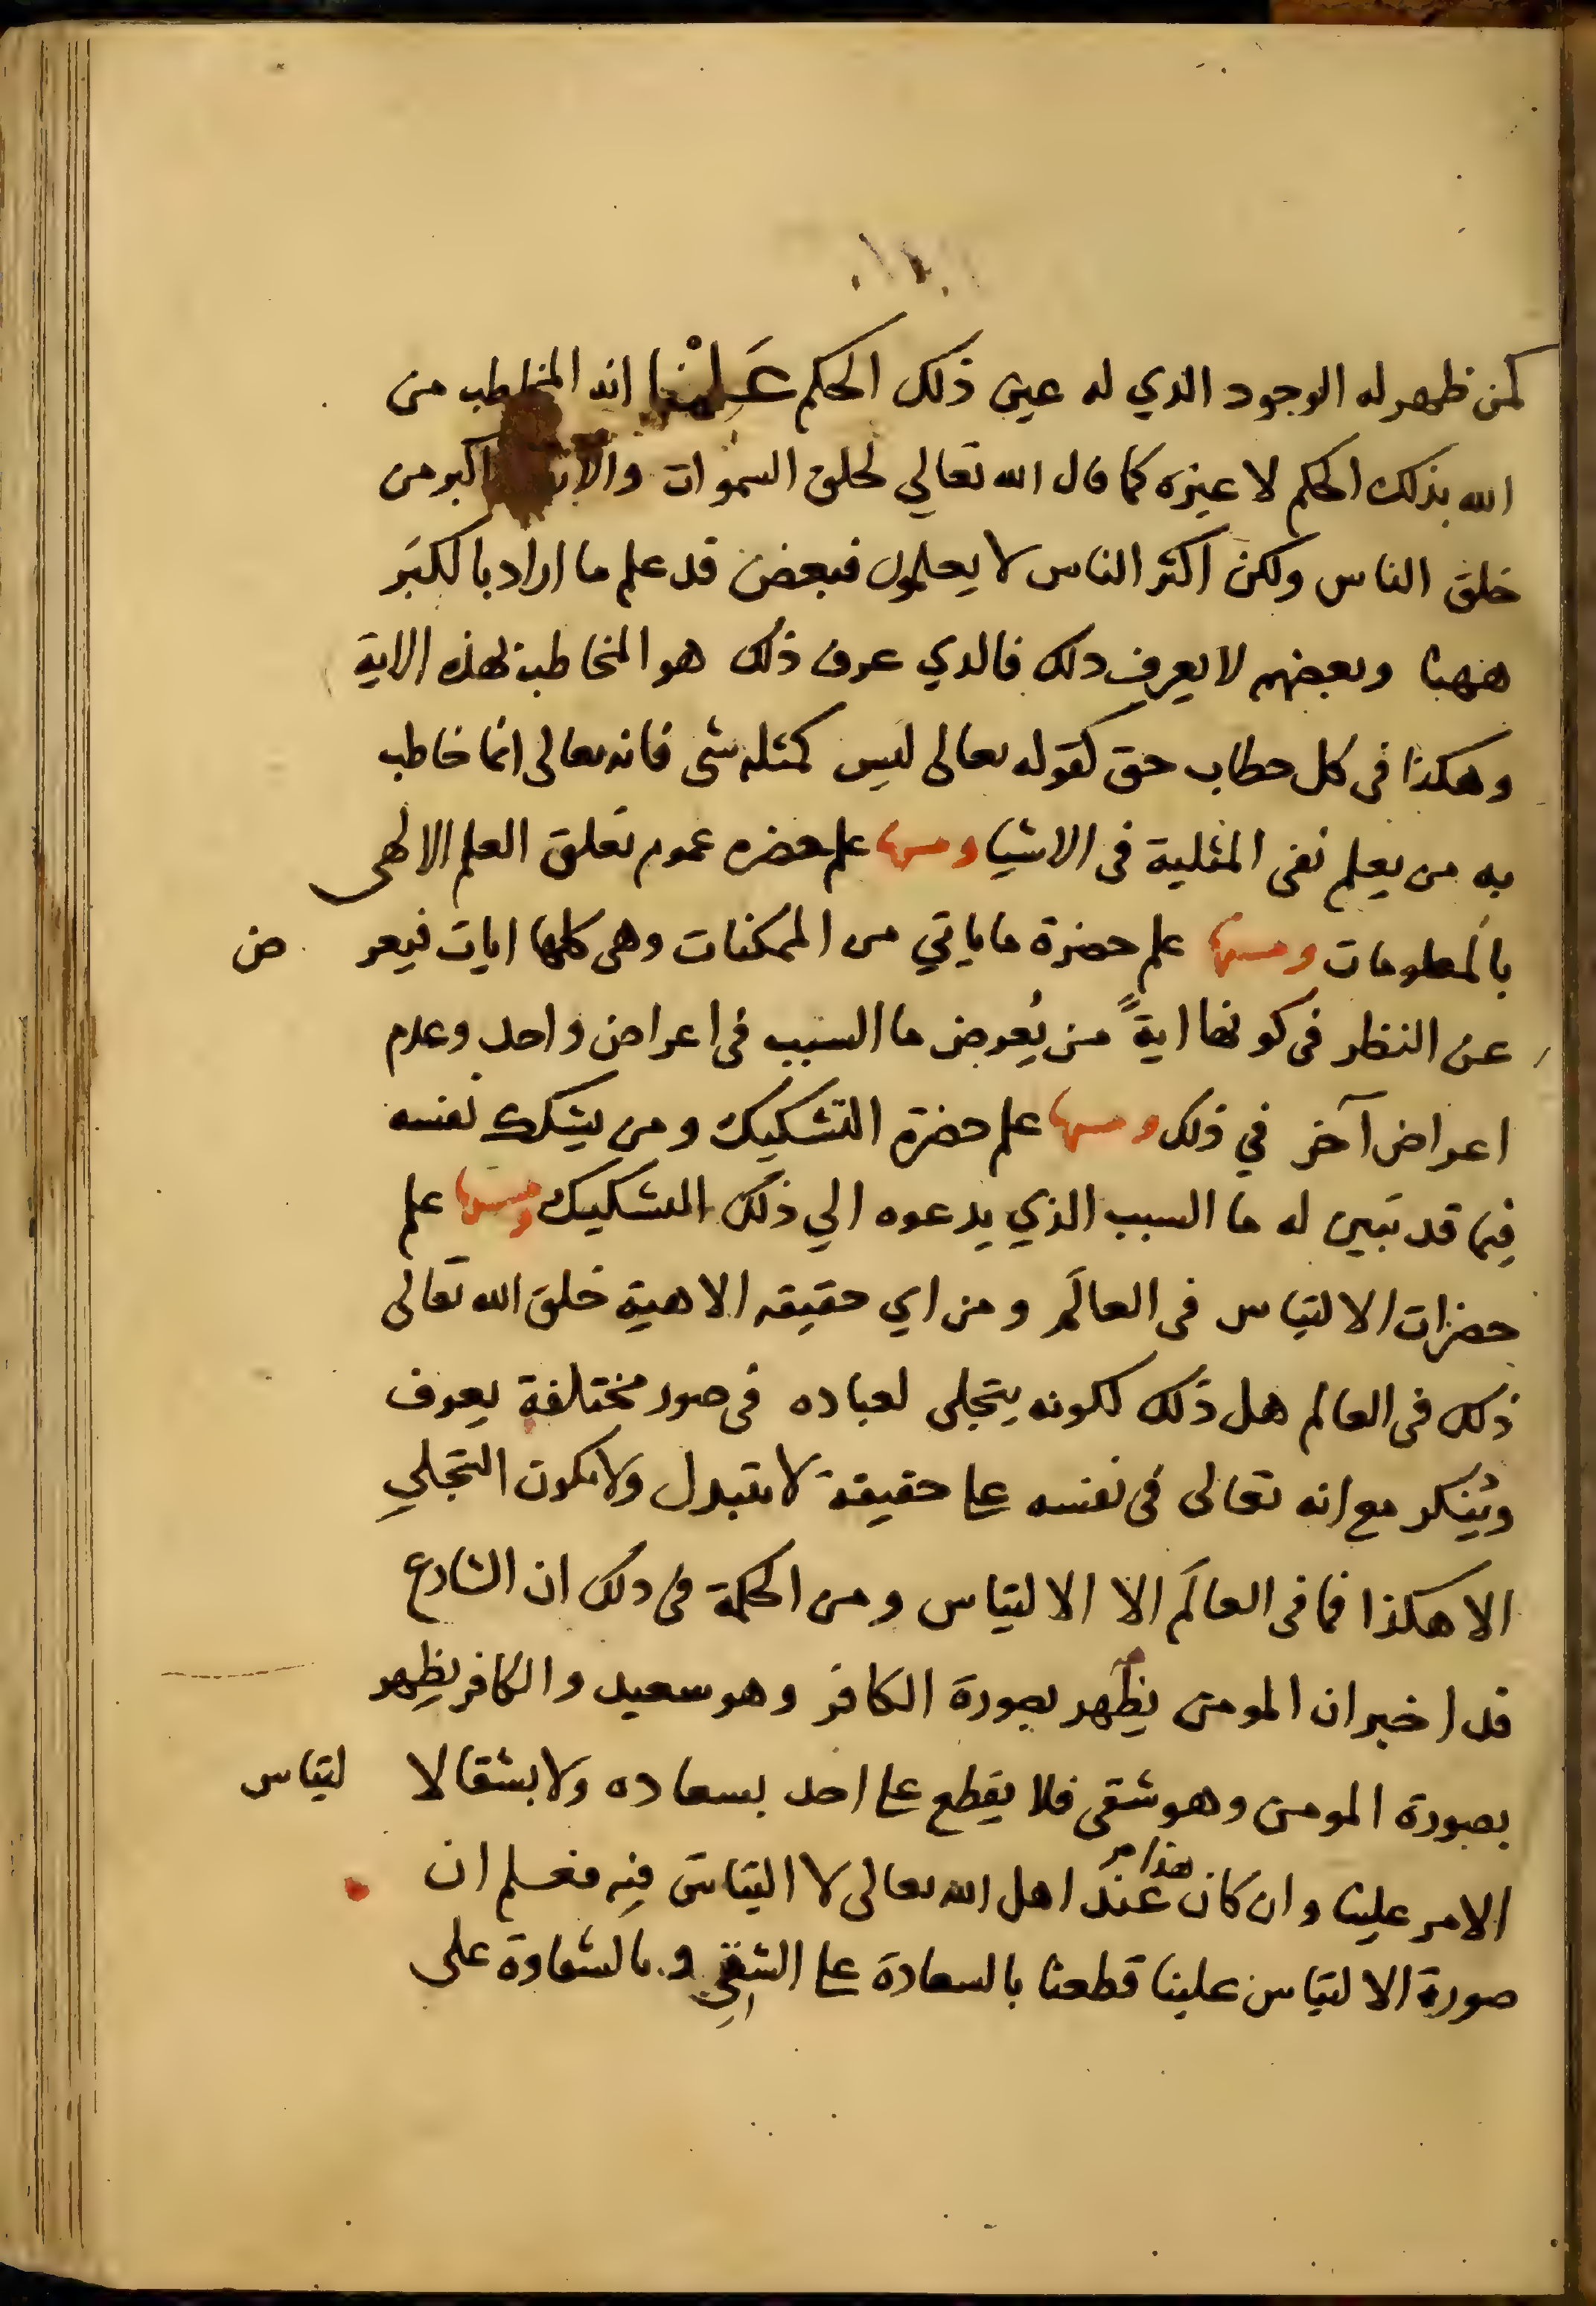 كمن ظهر له الوجود الذي له عين ذلك الحكم عَلِمْنا انه المخاطب من
الله بذلك الحكم لا غيره كما قال الله تعالي لخلق السموات والارض اكبر من
خلق الناس ولكن اكثر الناس لا يعلمون فبعض قد علم ما اراد بالكبَر
ههنا وبعضهم لا يعرف ذلك فالذي عرف ذلك هو المخاطب بهذه الاية
وهكذا فى كل خطاب حق كقوله تعالى ليس كمثله شى فانه تعالى انما خاطب
به من يعلم نفى المثلية فى الاشيا ومنها علم حضره عموم تعلق العلم الالهى
بالمعلومات ومنها علم حضرة ما ياتي من الممكنات وهى كلها ايات فيعرض
عن النظر فى كونها ايةً من يُعرض ما السبب فى اعراض واحد وعدم
اعراض آخر في ذلك ومنها علم حضرة التشكيك ومن يشكك نفسه
فيما قد تبين له ما السبب الذي يدعوه الي ذلك التشكيك ومنها علم
حضرات الالتباس فى العالَم ومن اي حقيقه الاهية خلق الله تعالى
ذلك فى العالم هل ذلك لكونه يتجلى لعباده فى صور مختلفة يعرف
ويُنكر مع انه تعالى فى نفسه على حقيقة لا تتبدل ولا يكون التجلي
الا هكذا فما فى العالَم الا الالتباس ومن الحكمة فى ذلك ان الشارع
قد اخبر ان المومن يظهر بصورة الكافر وهو سعيد والكافر يظهر
بصورة المومن وهو شقى فلا يقطع على احد بسعاده ولا بشقا لالتباس
الامر علينا وان كان هذا عند اهل الله تعالى لا التباس فيه فعلم ان
صورة الالتباس علينا قطعنا بالسعادة على الشقي وبالشقاوة على